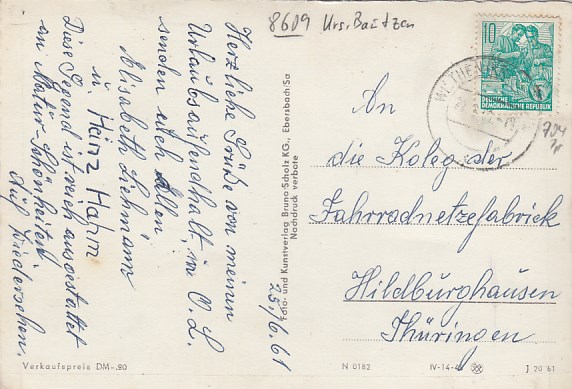 8609 Krs. Bautzen
25./6.61
Herzliche Grüße von meinen
Urlaubsaufendhalt, in O. L.
senden euch Allen
Elisabeth Lehmann
u. Heinz Hahn
Diese Gegend ist reich ausgestattet
an Natur-Schönheiten.
Auf Wiedersehen.
Foto- und Kunstverlag Bruno Scholz KG., Ebersbach/Sa
Nachdruck verboten
10
DEUTSCHE
DEMOKRATISCHE REPUBLIK
An
die Koleg. der
Fahrradnetzefabrick
Hildburghausen
Thüringen
Verkaufspreis DM -.20
N 0182
IV-14-4
J 20 61